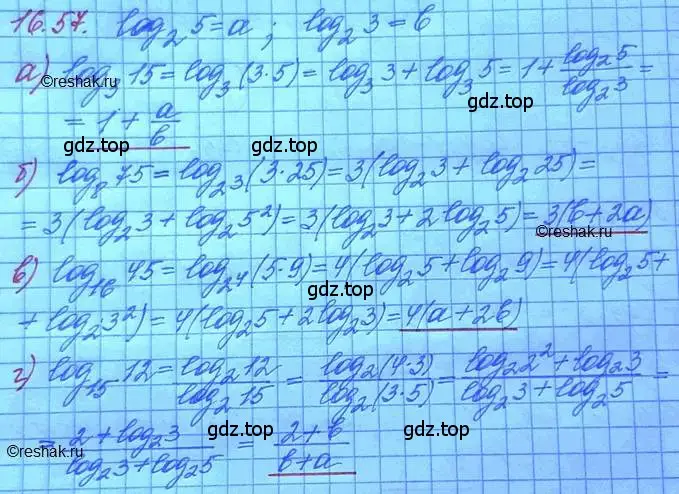 16.57. log₂5=a; log₂3=b
а) log₃15=log₃(3·5)=log₃3+log₃5=1+log₂5/log₂3=
©reshak.ru
gdz.top
=1+a/b
gdz.top gdz.top
б) log₈75=log₂3(3·25)=3(log₂3+log₂25)=
=3(log₂3+log₂5²)=3(log₂3+2log₂5)=3(b+2a)
gdz.top
©reshak.ru
в) log₁₆45=log₂4(5·9)=4(log₂5+log₂9)=4(log₂5+
gdz.top
+log₂3²)=4(log₂5+2log₂3)=4(a+2b)
г) log₁₅12=log₂12/log₂15=log₂(4·3)/log₂(3·5)=log₂2²+log₂3/log₂3+log₂5=
gdz.top
=2+log₂3/log₂3+log₂5=2+b/b+a
©reshak.ru
gdz.top gdz.top
©reshak.ru